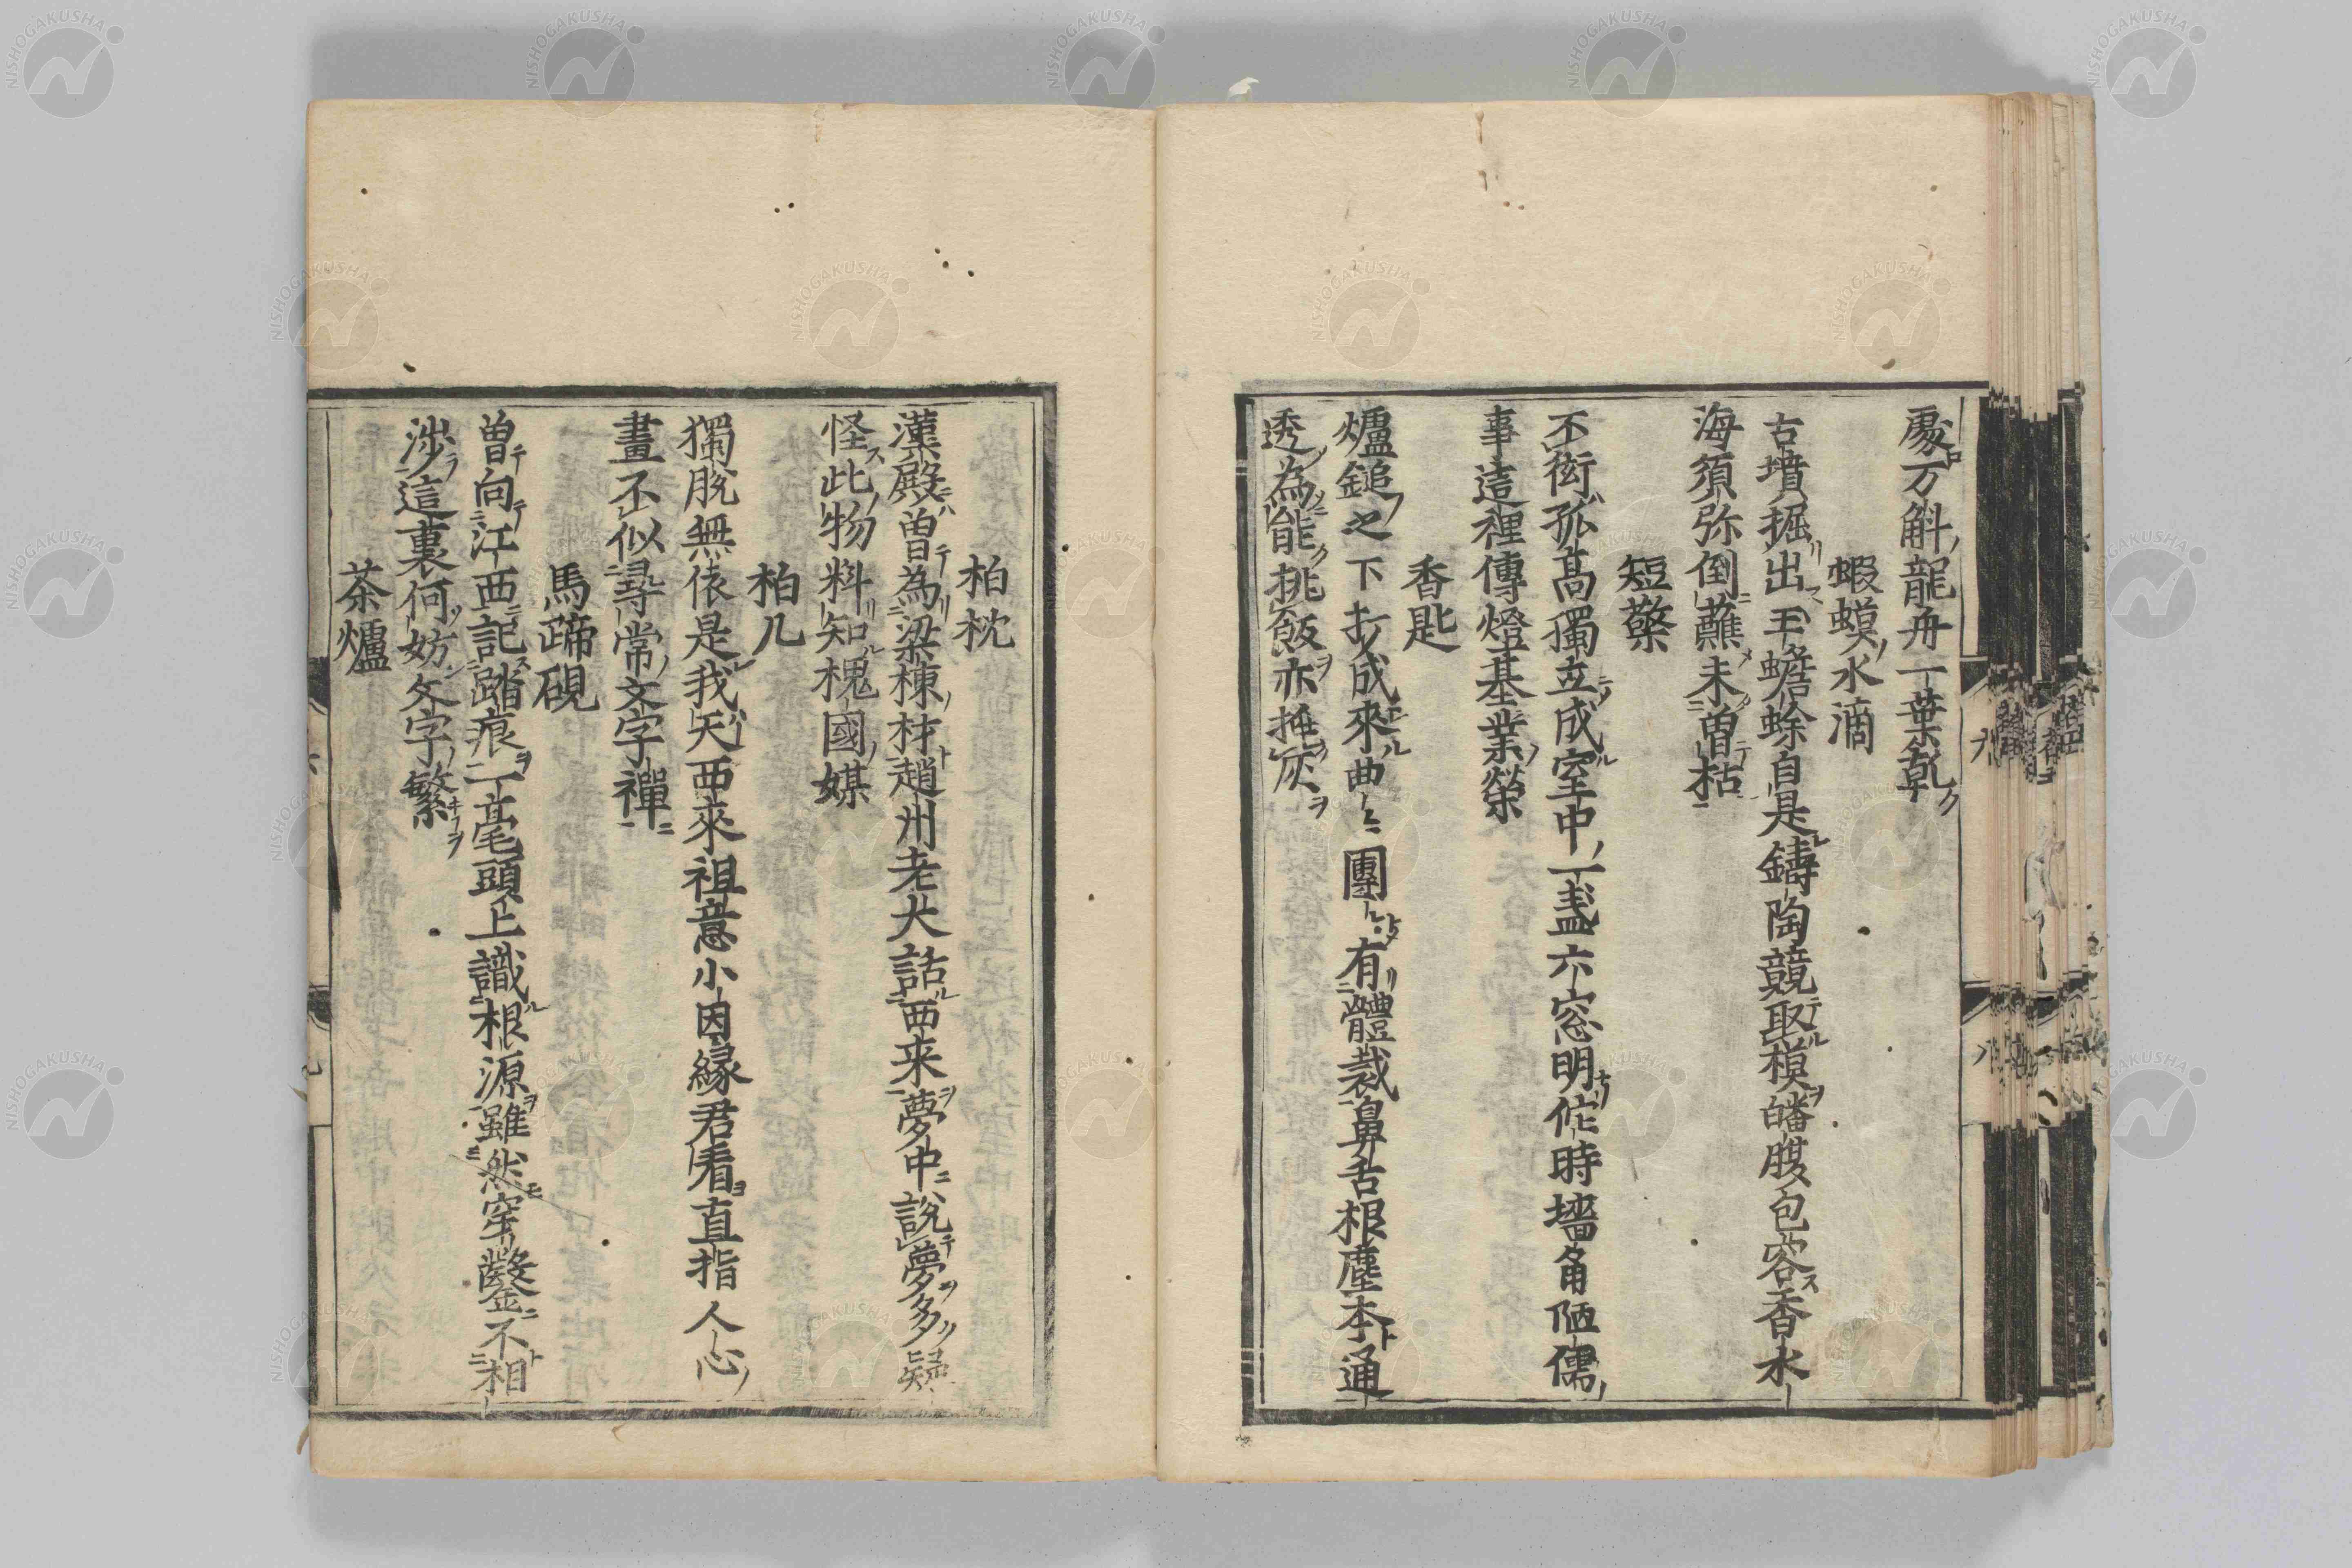 處万斛龍舟一葉乾
蝦蟆水滴
古墳掘出玉蟾蜍自是鑄陶競取模皤腹包容香水
海須弥倒蘸未曽枯
短檠
不衒孤高獨立成室中一盞六窓明佗時墻角陋儒
事這裡傳燈基業榮
香匙
爐鎚之下打成來曲〻團〻有體裁鼻舌根塵本通
透為能挑飯亦挿灰
柏枕
漢殿曽為梁棟材趙州老大話西来夢中說夢多疑
怪此物料知槐國媒
柏几
獨脫無依是我天西來祖意小因緣君看直指人心
畫不似尋常文字禪
馬蹄硯
曽向江西記踏痕一毫頭上識根源雖然穿鑿不相
涉這裏何妨文字繁
茶爐